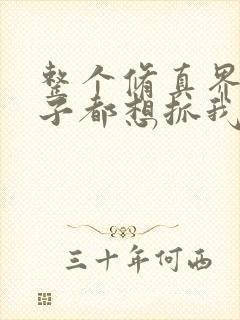 整个脩真界
子都想抓我
三十年何西